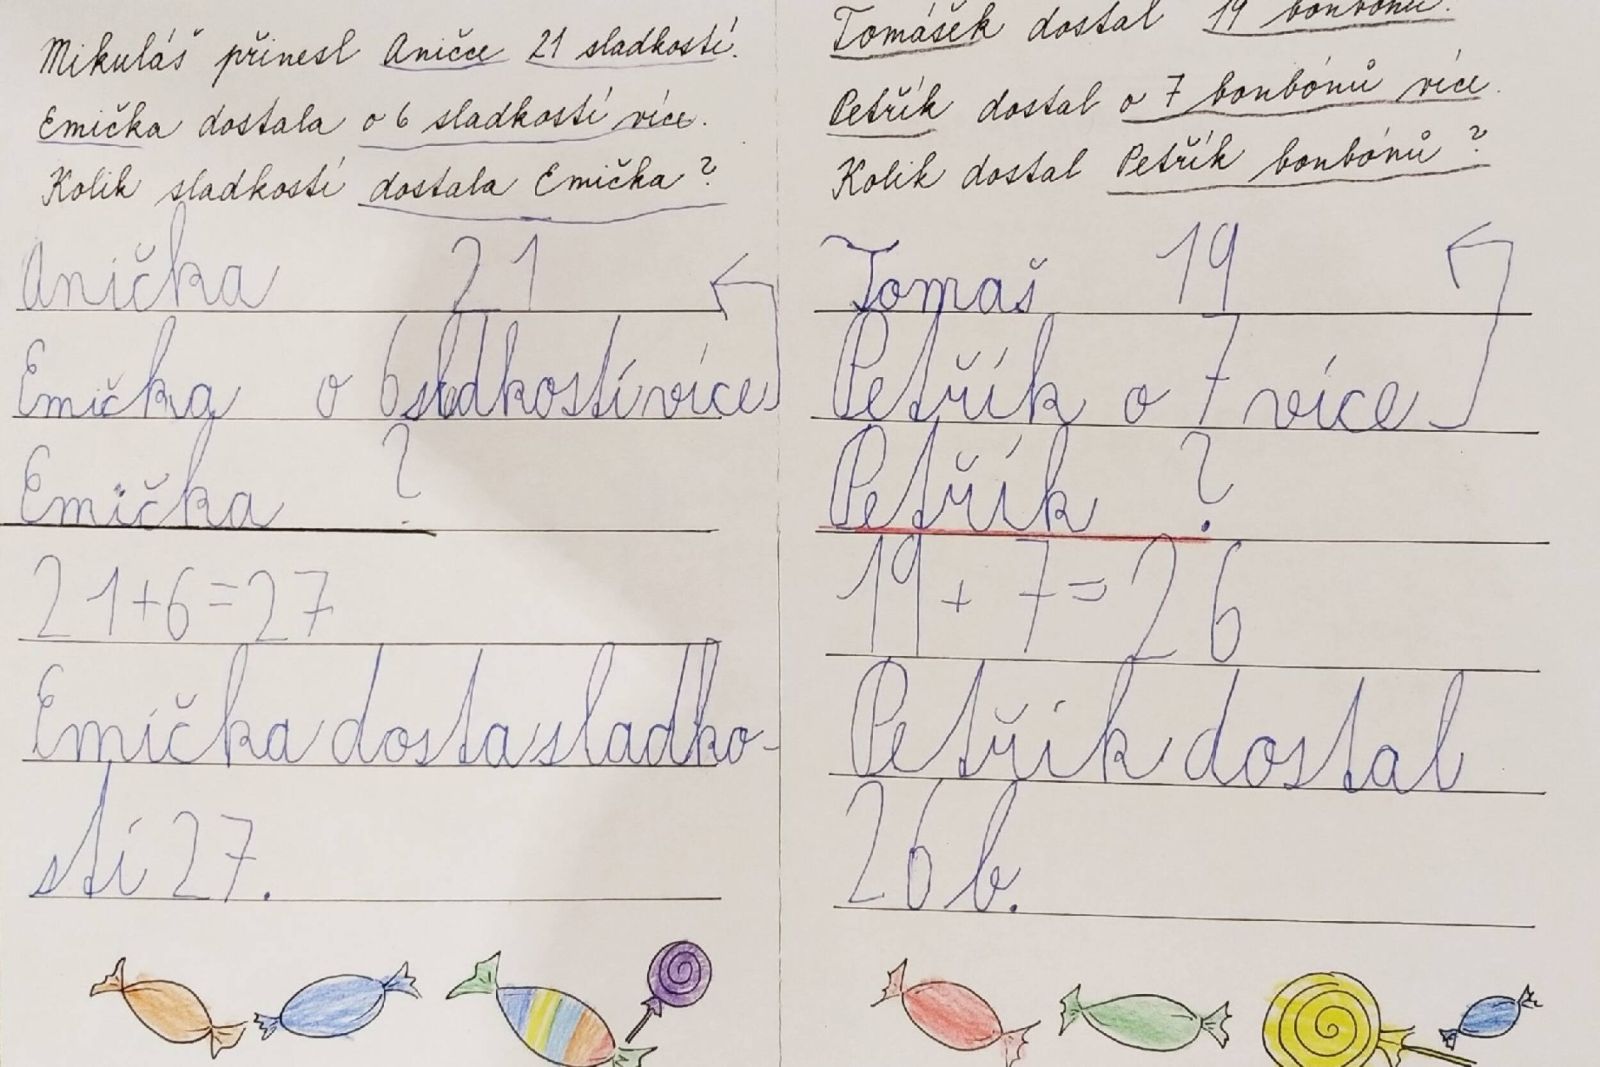 Mikuláš přinesl Aničce 21 sladkostí.
Emička dostala o 6 sladkostí více.
Kolik sladkostí dostala Emička?
Anička 21
Emička o 6 sladkostí více
Emička ?
21+6=27
Emička dosta sladko-
stí 27.
Tomášek dostal 19 bonbónů.
Petřík dostal o 7 bonbónů více.
Kolik dostal Petřík bonbónů?
Tomaš 19
Petřík o 7 více
Petřík ?
19+7=26
Petřík dostal
26 b.